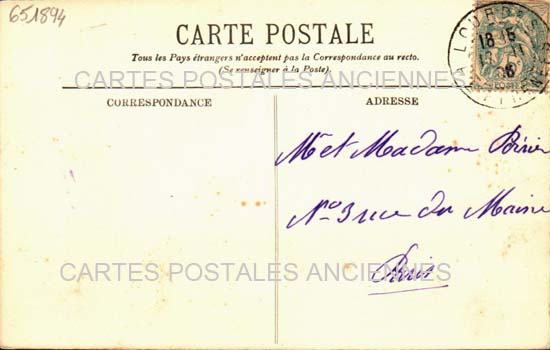 651894
CARTE POSTALE
Tous les Pays étrangers n'acceptent pas la Correspondance au recto.
(Se renseigner à la Poste).
CARTES POSTALES ANCIENNES
CORRESPONDANCE
ADRESSE
LOURDES
18 15
Mr et Madame
No 3 rue du Maine
CARTES POSTALES ANCIENNES
Paris